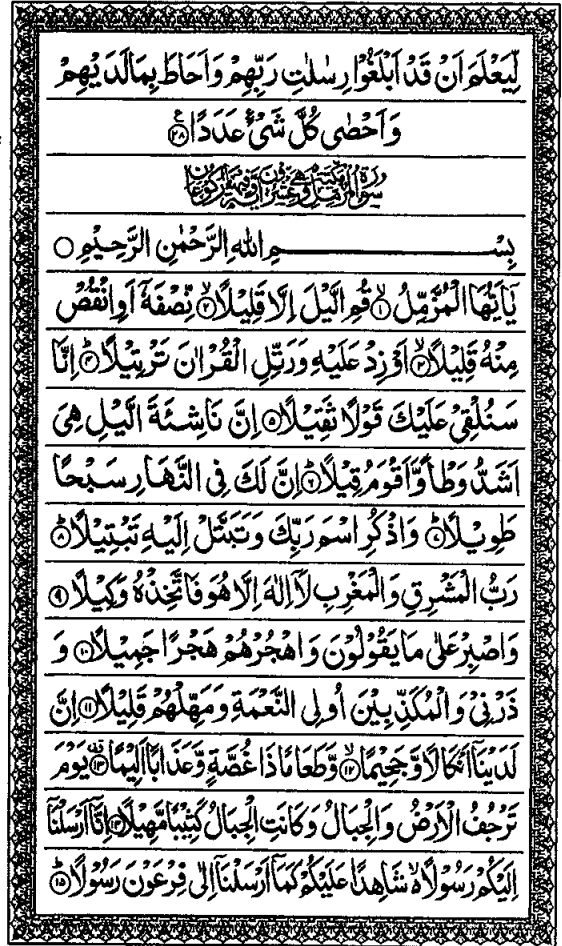 لِّيَعْلَمَ اَنْ قَدْ اَبْلَغُوْا رِسٰلٰتِ رَبِّهِمْ وَاَحَاطَ بِمَا لَدَيْهِمْ
وَاَحْصٰى كُلَّ شَىْءٍ عَدَدًا ۝۲۸
بِسْمِ اللهِ الرَّحْمٰنِ الرَّحِيْمِ ○
يٰۤاَيُّهَا الْمُزَّمِّلُ ۝۱ قُمِ الَّيْلَ اِلَّا قَلِيْلًا ۝۲ نِّصْفَهٗۤ اَوِ انْقُصْ
مِنْهُ قَلِيْلًا ۝۳ اَوْ زِدْ عَلَيْهِ وَرَتِّلِ الْقُرْاٰنَ تَرْتِيْلًا ۝۴ اِنَّا
سَنُلْقِىْ عَلَيْكَ قَوْلًا ثَقِيْلًا ۝۵ اِنَّ نَاشِئَةَ الَّيْلِ هِىَ
اَشَدُّ وَطْاً وَّاَقْوَمُ قِيْلًا ۝۶ اِنَّ لَكَ فِى النَّهَارِ سَبْحًا
طَوِيْلًا ۝۷ وَاذْكُرِ اسْمَ رَبِّكَ وَتَبَتَّلْ اِلَيْهِ تَبْتِيْلًا ۝۸
رَبُّ الْمَشْرِقِ وَالْمَغْرِبِ لَاۤ اِلٰهَ اِلَّا هُوَ فَاتَّخِذْهُ وَكِيْلًا ۝۹
وَاصْبِرْ عَلٰى مَا يَقُوْلُوْنَ وَاهْجُرْهُمْ هَجْرًا جَمِيْلًا ۝۱۰ وَ
ذَرْنِىْ وَالْمُكَذِّبِيْنَ اُولِى النَّعْمَةِ وَمَهِّلْهُمْ قَلِيْلًا ۝۱۱ اِنَّ
لَدَيْنَاۤ اَنْكَالًا وَّجَحِيْمًا ۝۱۲ وَّطَعَامًا ذَا غُصَّةٍ وَّعَذَابًا اَلِيْمًا ۝۱۳ يَوْمَ
تَرْجُفُ الْاَرْضُ وَالْجِبَالُ وَكَانَتِ الْجِبَالُ كَثِيْبًا مَّهِيْلًا ۝۱۴ اِنَّاۤ اَرْسَلْنَاۤ
اِلَيْكُمْ رَسُوْلًا ۙ شَاهِدًا عَلَيْكُمْ كَمَاۤ اَرْسَلْنَاۤ اِلٰى فِرْعَوْنَ رَسُوْلًا ۝۱۵